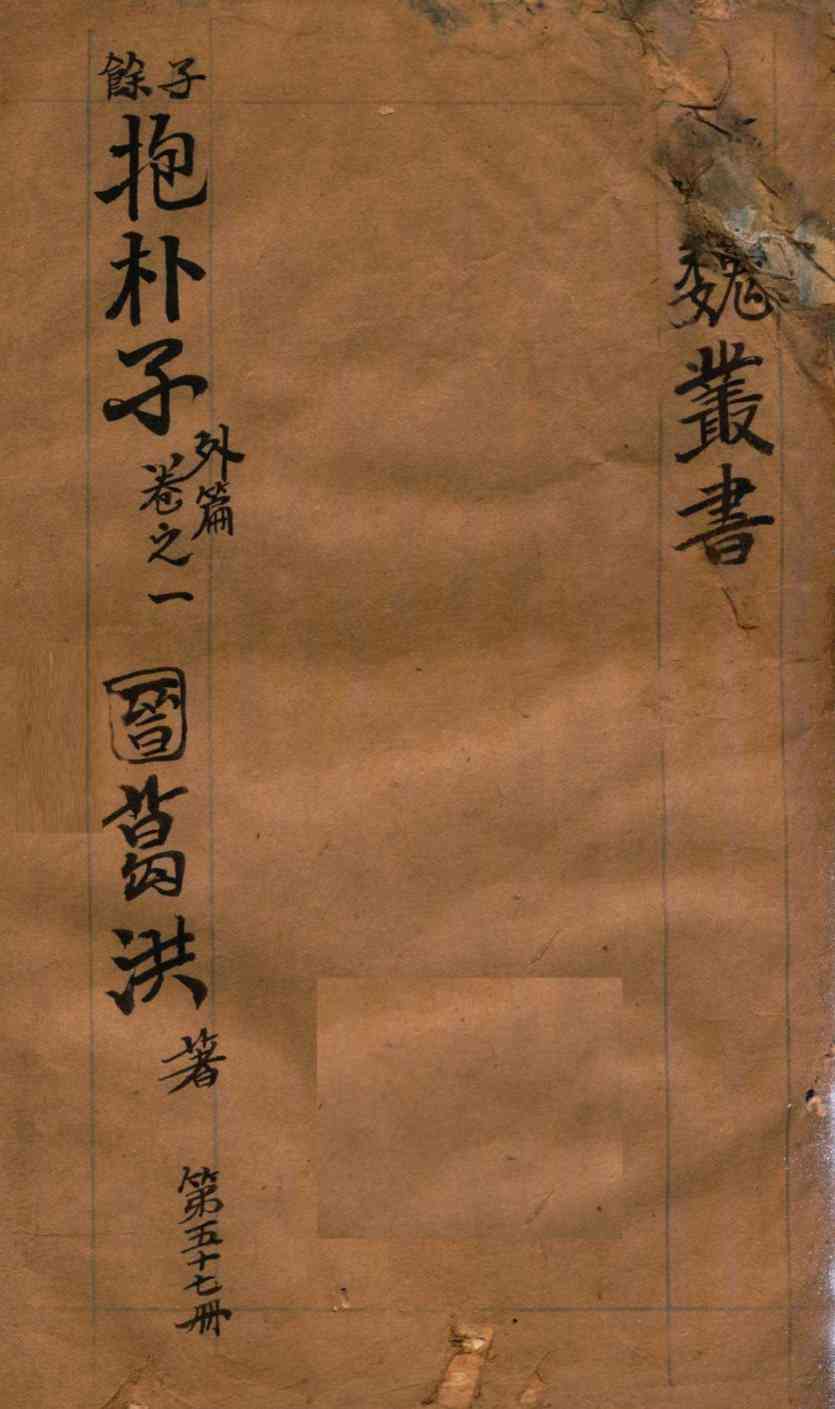 魏叢書
子餘
抱朴子
外篇
卷之一
晉
葛洪
著
第五十七冊